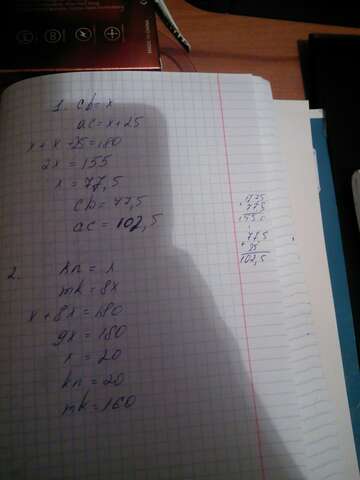 1. cb = x
ac = x + 25
x + x + 25 = 180
2x = 155
x = 77,5
cb = 77,5
ac = 102,5
77,5
+ 25
102,5
2. kn = x
mk = 8x
x + 8x = 180
9x = 180
x = 20
kn = 20
mk = 160